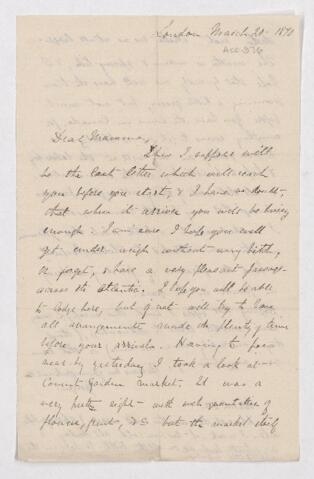 London March 20. 1870
Dear Mamma,
This I suppose will
be the last letter which will reach
you before you start, & I have no doubt
that when it arrives you will be busy
enough: I am sure. I hope you will
get under weigh without any hitch,
or forget, & have a very pleasant passage
across the Atlantic. I hope you will be able
to lodge here, but if not will try to have
all arrangements made in plenty of time
before your arrival. Having to pass
near by yesterday I took a look at
Covent Garden market. It was a
very pretty sight - with such quantities of
flowers, fruit, &c but the market itself